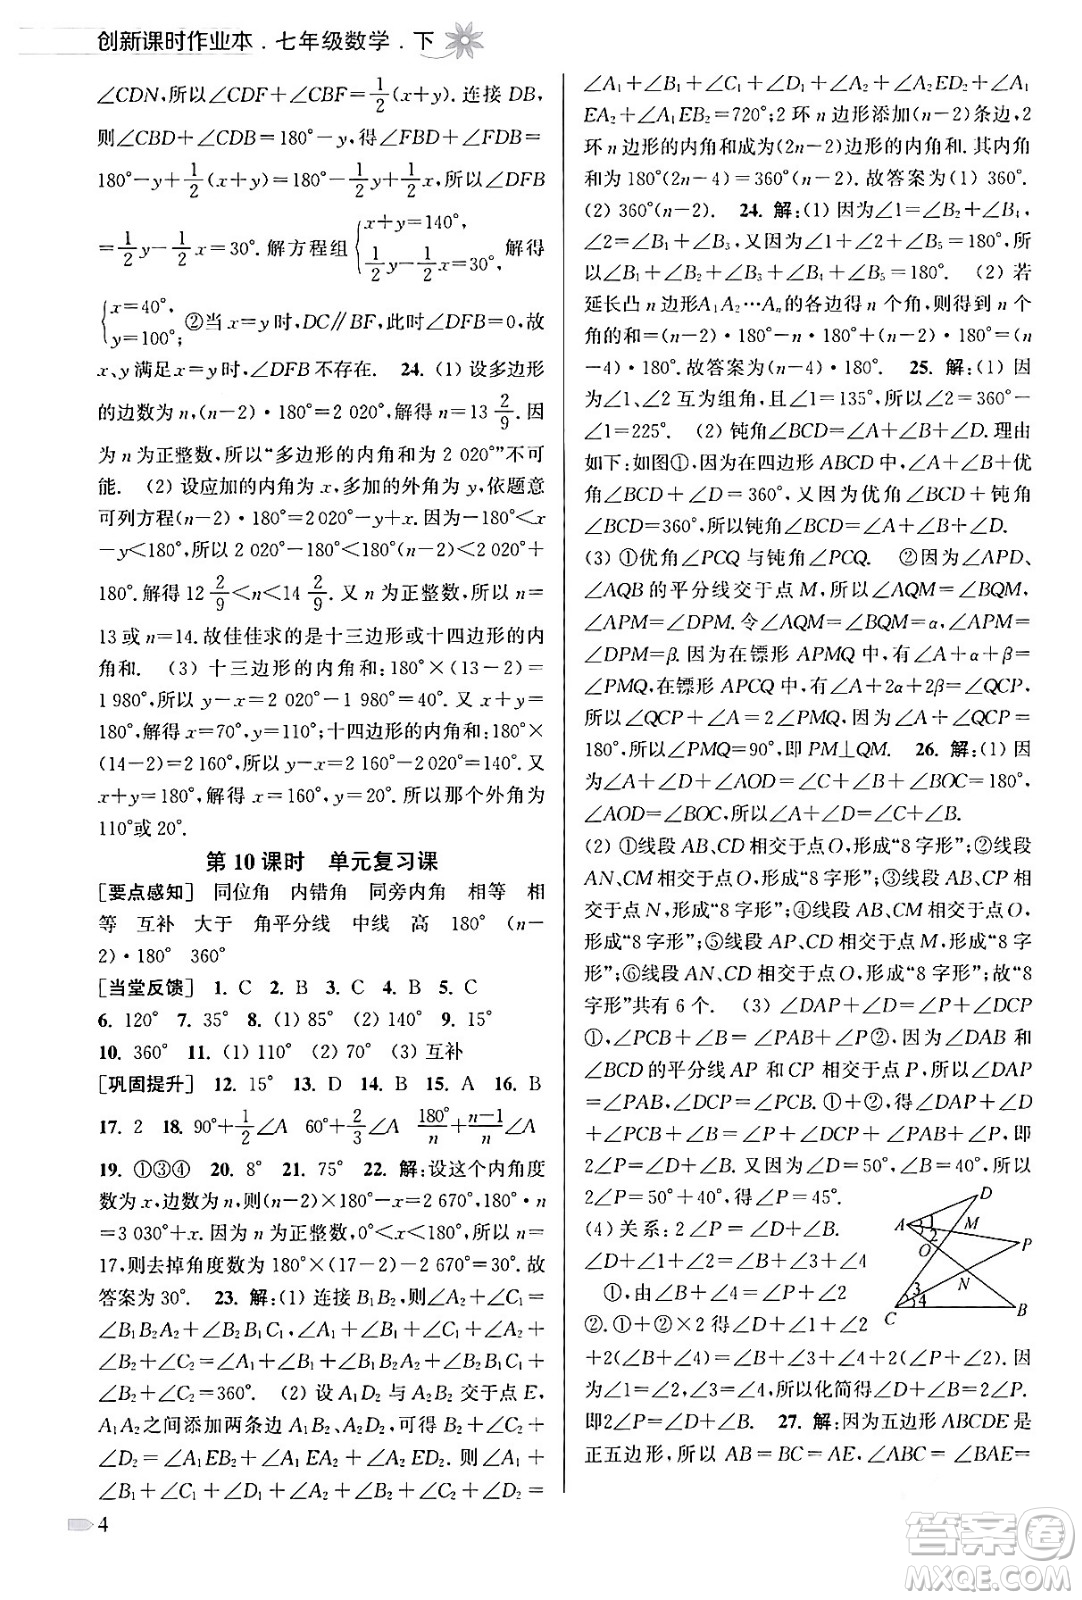 创新课时作业本．七年级数学．下
∠CDN,所以∠CDF＋∠CBF＝1/2(x＋y). 连接 DB,
则∠CBD＋∠CDB＝180°－y,得∠FBD＋∠FDB＝
180°－y＋1/2(x＋y)＝180°－1/2y＋1/2x,所以∠DFB
＝1/2y－1/2x＝30°. 解方程组{x＋y＝140°, 1/2y－1/2x＝30°, 解得
{x＝40°, y＝100°; ②当 x＝y 时,DC∥BF,此时∠DFB＝0,故
x、y 满足 x＝y 时,∠DFB 不存在. 24. (1) 设多边形
的边数为 n,(n－2)·180°＝2 020°,解得 n＝13 2/9. 因
为 n 为正整数,所以“多边形的内角和为 2 020°”不可
能. (2) 设应加的内角为 x,多加的外角为 y,依题意
可列方程(n－2)·180°＝2 020°－y＋x. 因为－180°＜x
－y＜180°,所以 2 020°－180°＜(n－2)·180°＜2 020°＋
180°,解得 12 2/9＜n＜14 2/9. 又 n 为正整数,所以 n＝
13 或 n＝14. 故佳佳求的是十三边形或十四边形的内
角和. (3) 十三边形的内角和:180°×(13－2)＝
1 980°,所以 y－x＝2 020°－1 980°＝40°. 又 x＋y＝
180°,解得 x＝70°,y＝110°;十四边形的内角和:180°×
(14－2)＝2 160°,所以 x－y＝2 160°－2 020°＝140°. 又
x＋y＝180°,解得 x＝160°,y＝20°. 所以那个外角为
110°或 20°.
第 10 课时　单元复习课
[要点感知]　同位角　内错角　同旁内角　相等　相
等　互补　大于　角平分线　中线　高　180°　(n－
2)·180°　360°
[当堂反馈]　1. C　2. B　3. C　4. B　5. C
6. 120°　7. 35°　8. (1) 85°　(2) 140°　9. 15°
10. 360°　11. (1) 110°　(2) 70°　(3) 互补
[巩固提升]　12. 15°　13. D　14. B　15. A　16. B
17. 2　18. 90°＋1/2∠A　60°＋2/3∠A　180°/n＋(n－1)/n∠A
19. ①③④　20. 8°　21. 75°　22. 解:设这个内角度
数为 x,边数为 n,则(n－2)×180°－x＝2 670°,180°·n
＝3 030°＋x. 因为 n 为正整数,0°＜x＜180°,所以 n＝
17,则去掉角度数为 180°×(17－2)－2 670°＝30°. 故
答案为 30°. 23. 解:(1) 连接 B₁B₂,则∠A₂＋∠C₁＝
∠B₁B₂A₂＋∠B₂B₁C₁,∠A₁＋∠B₁＋∠C₁＋∠A₂＋
∠B₂＋∠C₂＝∠A₁＋∠B₁＋∠B₁B₂A₂＋∠B₂B₁C₁＋
∠B₂＋∠C₂＝360°. (2) 设 A₁D₂ 与 A₂D₂ 交于点 E,
A₁A₂ 之间添加两条边 A₁B₂、B₂D₂. 可得∠B₂＋∠C₂＋
∠D₂＝∠A₁EB₂＋∠A₂ED₂,则∠A₁＋∠B₁＋∠C₁＋
∠D₁＋∠A₂＋∠B₂＋∠C₂＋∠D₂＝
∠A₁＋∠B₁＋∠C₁＋∠D₁＋∠A₂＋∠A₂ED₂＋∠A₁
EA₂＋∠A₁EB₂＝720°;2 环 n 边形添加(n－2)条边,2
环 n 边形的内角和成为(2n－2)边形的内角和. 其内角
和为 180°(2n－4)＝360°(n－2). 故答案为(1) 360°.
(2) 360°(n－2). 24. 解:(1) 因为∠1＝∠B₂＋∠B₄,
∠2＝∠B₁＋∠B₃,又∠1＋∠2＋∠B₅＝180°,所
以∠B₁＋∠B₂＋∠B₃＋∠B₄＋∠B₅＝180°. (2) 若
延长凸 n 边形 A₁A₂…Aₙ 的各边得 n 个角,则得到 n 个
角的和＝(n－2)·180°－n·180°＋(n－2)·180°＝(n
－4)·180°. 故答案为(n－4)·180°. 25. 解:(1) 因
为∠1、∠2 互为组角,且∠1＝135°,所以∠2＝360°－
∠1＝225°. (2) 钝角∠BCD＝∠A＋∠B＋∠D. 理由
如下:如图①,因为在四边形 ABCD 中,∠A＋∠B＋优
角∠BCD＋∠D＝360°,又因为优角∠BCD＋钝角
∠BCD＝360°,所以钝角∠BCD＝∠A＋∠B＋∠D.
(3) ①优角∠PCQ 与钝角∠PCQ. ②因为∠APD、
∠AQB 的平分线交于点 M,所以∠AQM＝∠BQM,
∠APM＝∠DPM. 令∠AQM＝∠BQM＝α,∠APM＝
∠DPM＝β. 因为在镖形 APMQ 中,有∠A＋α＋β＝
∠PMQ,在镖形 APCQ 中,有∠A＋2α＋2β＝∠QCP,
所以∠QCP＋∠A＝2∠PMQ. 因为∠A＋∠QCP＝
180°,所以∠PMQ＝90°,即 PM⊥QM. 26. 解:(1) 因
为∠A＋∠D＋∠AOD＝∠C＋∠B＋∠BOC＝180°,
∠AOD＝∠BOC,所以∠A＋∠D＝∠C＋∠B.
(2) ①线段 AB、CD 相交于点 O,形成“8 字形”;②线
段 AN、CM 相交于点 O,形成“8 字形”;③线段 AB、CP
相交于点 N,形成“8 字形”;④线段 AB、CM 相交于点 O,
形成“8 字形”;⑤线段 AP、CD 相交于点 M,形成“8 字
形”;⑥线段 AN、CD 相交于点 O,形成“8 字形”;故“8
字形”共有 6 个. (3) ∠DAP＋∠D＝∠P＋∠DCP
①,∠PCB＋∠B＝∠PAB＋∠P②. 因为∠DAB
和∠BCD 的平分线 AP 和 CP 相交于点 P,所以
∠DAP＝∠PAB,∠DCP＝∠PCB,①＋②,得∠DAP＋∠D
＋∠PCB＋∠B＝∠P＋∠DCP＋∠PAB＋∠P,即
2∠P＝∠D＋∠B. 又因为∠D＝50°,∠B＝40°,所以
2∠P＝50°＋40°,得∠P＝45°.
(4) 关系:2∠P＝∠D＋∠B.
∠D＋∠1＝∠P＋∠3①,∠B＋∠4
①,由∠B＋∠4＝∠P＋∠2
②. ①＋②×2 得∠D＋∠1＋∠2
＋2(∠B＋∠4)＝∠P＋∠3＋2(∠P＋∠2). 因
为∠1＝∠2,∠3＝∠4,所以化简得∠D＋∠B＝2∠P.
即2∠P＝∠D＋∠B. 27. 解:因为五边形 ABCDE 是
正五边形,所以 AB＝BC＝AE,∠ABC＝∠BAE＝
D
A 1 2 M
P
O
N
3 4
C B
4
答案圈
MXQE.COM